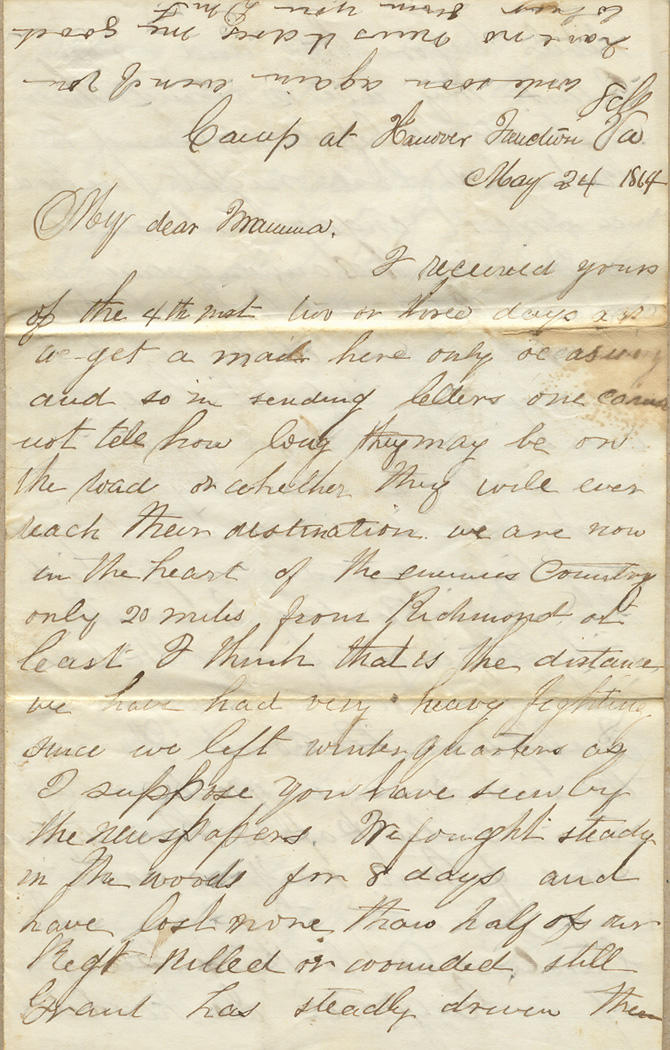 write soon again even if you
have no news it does me good
to hear from you
Camp at Hanover Junction Va
May 24 1864
My dear Mamma.
I received yours
of the 4th inst two or three days ago
we get a mail here only
and so in sending letters one cannot
not tell how long they may be on
the road or whether they will ever
reach their destination. we are now
in the heart of the enemies Country
only 20 miles from Richmond at
least I think that is the distance
we have had very heavy fighting
since we left winter quarters as
I suppose you have seen by
the newspapers. We fought steady
in the woods for 8 days and
have lost more than half of our
Regt killed or wounded, still
Grant has steadly driven them